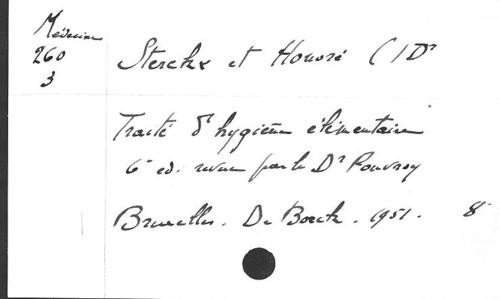 Médecine
260
3
Sterckx et Honoré (Dr
Traité d'hygiène élémentaire
6e ed. revue par le Dr Rouvroy
Bruxelles. De Boeck. 1951. 8°